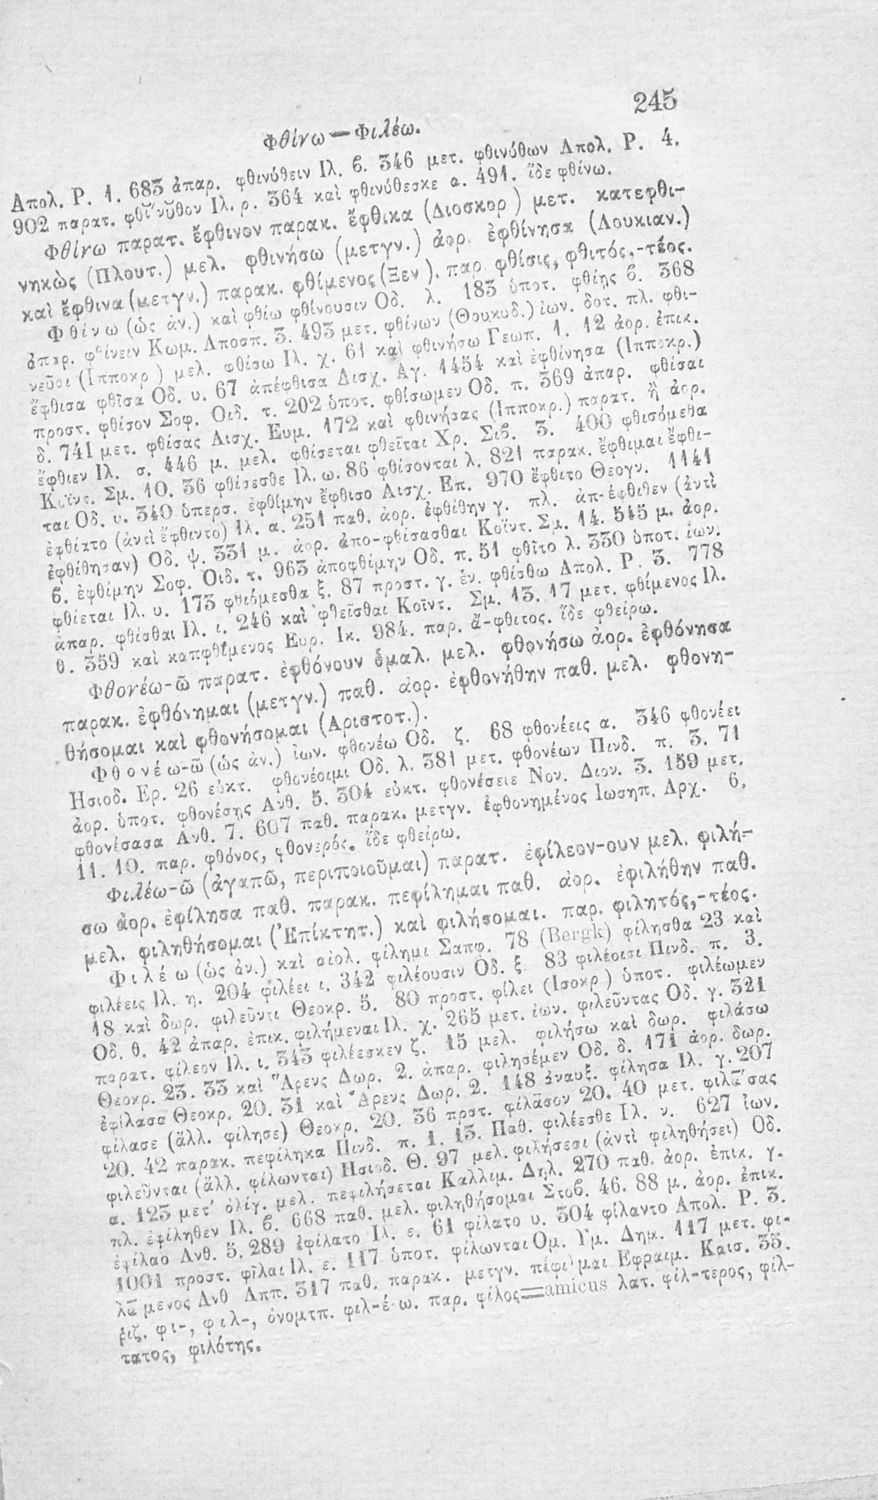 245
Φθίνω—Φιλέω.
Απολ. Ρ. 1. 683 ἀπαρ. φθινύθειν Ιλ. β. 346 μετ. φθινύθων Απολ. Ρ. 4.
902 παρατ. φθίνυθον Ιλ. ρ. 364 καὶ φθινύθεσκε α. 491. ἴδε φθίνω.
Φθίνω παρατ. ἔφθινον παρακ. ἔφθικα (Διοσκορ) μετ. κατεφθι-
νηκὼς (Πλουτ.) μελ. φθινήσω (μετγν.) ἀόρ. ἐφθίνησα (Λουκιαν.)
καὶ ἔφθινα (μετγν.) παρακ. φθίμενος (Ξεν). παρ φθίσις, φθιτός, -τέος.
Φθίνω (ὡς ἀν.) καὶ φθίω φθίνουσιν Οδ. λ. 183 ὑποτ. φθίῃς β. 368
ἀπαρ. φθίνειν Κωμ. Αποσπ. 3. 493 μετ. φθίνων (Θουκυδ.) ἰων. δοτ. πλ. φθι-
νεῦσι (Ιπποκρ) μελ. φθίσω Ιλ. χ. 61 καὶ φθινήσω Γεωπ. 1. 12 ἀόρ. ἐπικ.
ἔφθισα φθῖσα Οδ. υ. 67 ἀπέφθισα Αισχ. Αγ. 1454 καὶ ἐφθίνησα (Ιπποκρ.)
προστ. φθίσον Σοφ. Οιδ. τ. 202 ὑποτ. φθίσωμεν Οδ. π. 369 ἀπαρ. φθίσαι
δ. 741 μετ. φθίσας Αισχ. Ευμ. 172 καὶ φθινήσας (Ιπποκρ.) παρατ. ἢ ἀόρ.
ἔφθιεν Ιλ. σ. 446 μ. μελ. φθίσεται φθεῖται Χρ. Σιβ. 3. 400 φθισόμεθα
Κοϊντ. Σμ. 10. 36 φθίσεσθε Ιλ. ω. 86 φθίσονται λ. 821 παρακ. ἔφθιμαι ἔφθι-
ται Οδ. υ. 340 ὑπερσ. ἐφθίμην ἔφθισο Αισχ. Επ. 970 ἔφθιτο Θεογν. 1141
ἐφθίατο (ἀντὶ ἔφθιντο) Ιλ. α. 251 παθ. ἀόρ. ἐφθίθην γ. πλ. ἀπ-έφθιθεν (ἀντὶ
ἐφθίθησαν) Οδ. ψ. 331 μ. ἀόρ. ἀπο-φθίσασθαι Κοϊντ. Σμ. 14. 545 μ. ἀόρ.
β. ἐφθίμην Σοφ. Οιδ. τ. 963 ἀποφθίμην Οδ. π. 51 φθῖτο λ. 330 ὑποτ. ἰων.
φθίεται Ιλ. υ. 173 φθιόμεσθα ξ. 87 προστ. γ. ἑν. φθίσθω Απολ. Ρ. 3. 778
ἀπαρ. φθίσθαι Ιλ. ι. 246 καὶ φθεῖσθαι Κοϊντ. Σμ. 13. 17 μετ. φθίμενος Ιλ.
θ. 359 καὶ καπφθίμενος Ευρ. Ικ. 984. παρ. ἄ-φθιτος. ἴδε φθείρω.
Φθονέω-ῶ παρατ. ἐφθόνουν ὁμαλ. μελ. φθονήσω ἀόρ. ἐφθόνησα
παρακ. ἐφθόνημαι (μετγν.) παθ. ἀόρ. ἐφθονήθην παθ. μελ. φθονη-
θήσομαι καὶ φθονήσομαι (Αριστοτ.).
Φθονέω-ῶ (ὡς ἀν.) ἰων. φθονέω Οδ. ζ. 68 φθονέεις α. 346 φθονέει
Ησιοδ. Ερ. 26 εὐκτ. φθονέοιμι Οδ. λ. 381 μετ. φθονέων Πινδ. π. 3. 71
ἀόρ. ὑποτ. φθονέσῃς Ανθ. 5. 304 εὐκτ. φθονέσειε Νον. Διον. 3. 159 μετ.
φθονέσασα Ανθ. 7. 607 παθ. παρακ. μετγν. ἐφθονημένος Ιωσηπ. Αρχ. 6,
11. 10. παρ. φθόνος, φθονερός. ἴδε φθείρω.
Φιλέω-ῶ (ἀγαπῶ, περιποιοῦμαι) παρατ. ἐφίλεον-ουν μελ. φιλή-
σω ἀόρ. ἐφίλησα παθ. παρακ. πεφίλημαι παθ. ἀόρ. ἐφιλήθην παθ.
μελ. φιληθήσομαι (Ἐπίκτητ.) καὶ φιλήσομαι. παρ. φιλητός, -τέος.
Φιλέω (ὡς ἀν.) καὶ αἰολ. φίλημι Σαπφ. 78 (Bergk) φίλησθα 23 καὶ
φιλέεις Ιλ. η. 204 φιλέει ι. 342 φιλέουσιν Οδ. ξ 83 φιλέοισι Πινδ. π. 3.
18 καὶ δωρ. φιλεῦντι Θεοκρ. 5. 80 προστ. φίλει (Ισοκρ) ὑποτ. φιλέωμεν
Οδ. θ. 42 ἀπαρ. ἐπικ. φιλήμεναι Ιλ. χ. 265 μετ. ἰων. φιλεῦντας Οδ. γ. 321
παρατ. φίλεον Ιλ. ι. 343 φιλέεσκεν ζ. 15 μελ. φιλήσω καὶ δωρ. φιλάσω
Θεοκρ. 23. 33 καὶ Ἄρενς Δωρ. 2. ἀπαρ. φιλησέμεν Οδ. δ. 171 ἀόρ. δωρ.
ἐφίλασα Θεοκρ. 20. 31 καὶ Ἄρενς Δωρ. 2. 148 ἀναυξ. φίλησα Ιλ. γ. 207
φίλασε (ἄλλ. φίλησε) Θεοκρ. 20. 36 πρστ. φίλᾶσον 20. 40 μετ. φιλᾶσας
20. 42 παρακ. πεφίληκα Πινδ. π. 1. 13. Παθ. φιλέεσθε Ιλ. ν. 627 ἰων.
φιλεῦνται (ἄλλ. φίλωνται) Ησιοδ. Θ. 97 μελ. φιλήσεαι (ἀντὶ φιληθήσει) Οδ.
α. 123 μετ' ὀλίγ. μελ. πεφιλήσεται Καλλιμ. Δηλ. 270 παθ. ἀόρ. ἐπικ. γ.
πλ. ἐφίληθεν Ιλ. β. 668 παθ. μελ. φιληθήσομαι Στοβ. 46. 88 μ. ἀόρ. ἐπικ.
ἐφίλαο Ανθ. 5. 289 ἐφίλατο Ιλ. ε. 61 φίλατο υ. 304 φίλαντο Απολ. Ρ. 3.
1001 προστ. φῖλαι Ιλ. ε. 117 ὑποτ. φίλωνται Ομ. Υμ. Δημ. 117 μετ. φι-
λᾶμενος Ανθ Αππ. 317 παθ. παρακ. μετγν. πέφιλμαι Εφραιμ. Καισ. 35.
ῥιζ. φι-, φιλ-, ὀνομτπ. φιλ-έ-ω. παρ. φίλος=amicus λατ. φίλ-τερος, φίλ-
τατος, φιλότης.